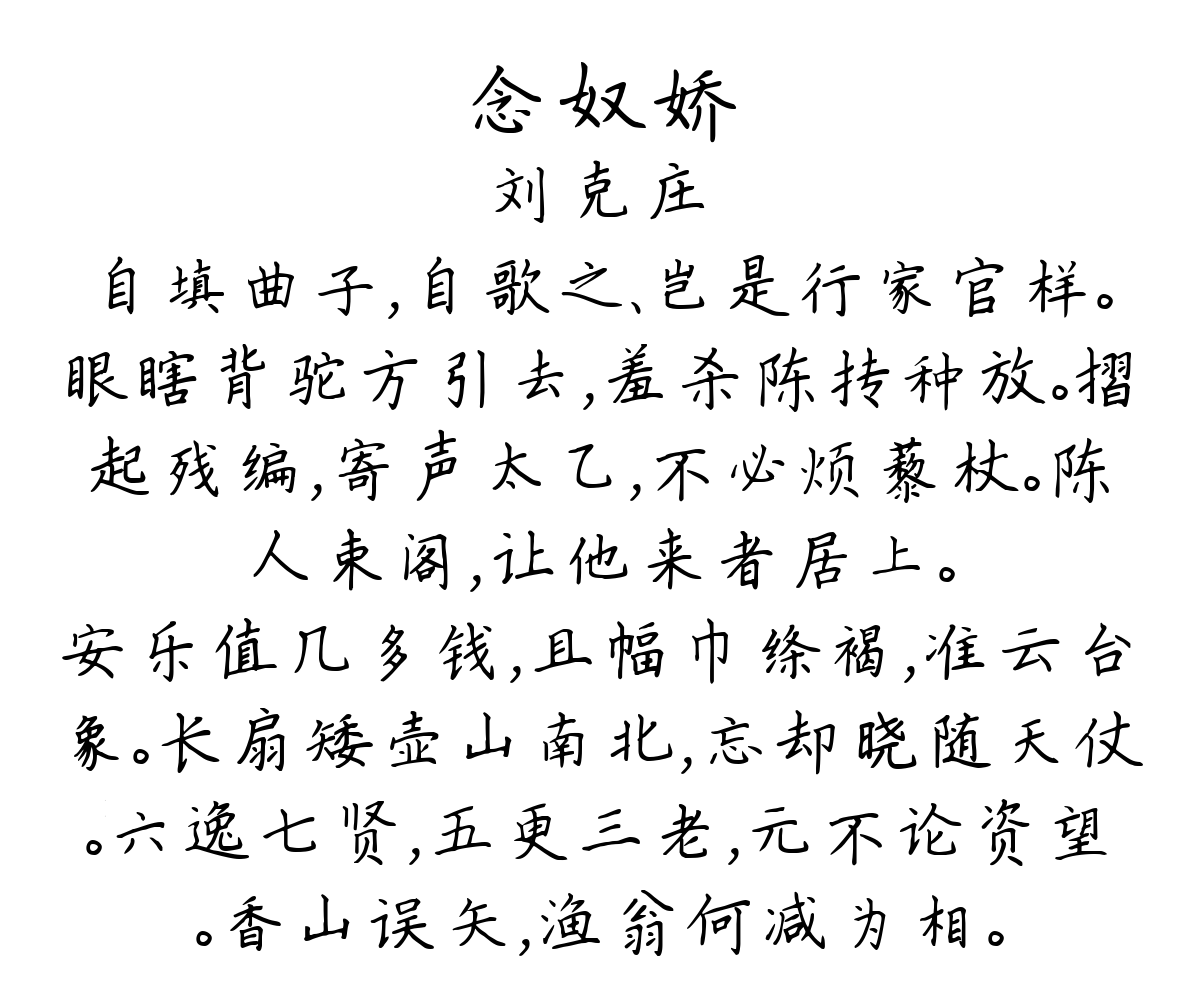 念奴娇
刘克庄
自填曲子,自歌之、岂是行家官样。
眼瞎背驼方引去,羞杀陈抟种放。摺
起残编,寄声太乙,不必烦藜杖。陈
人束阁,让他来者居上。
安乐值几多钱,且幅巾绦褐,准云台
象。长扇矮壶山南北,忘却晓随天仗
。六逸七贤,五更三老,元不论资望
。香山误矢,渔翁何减为相。